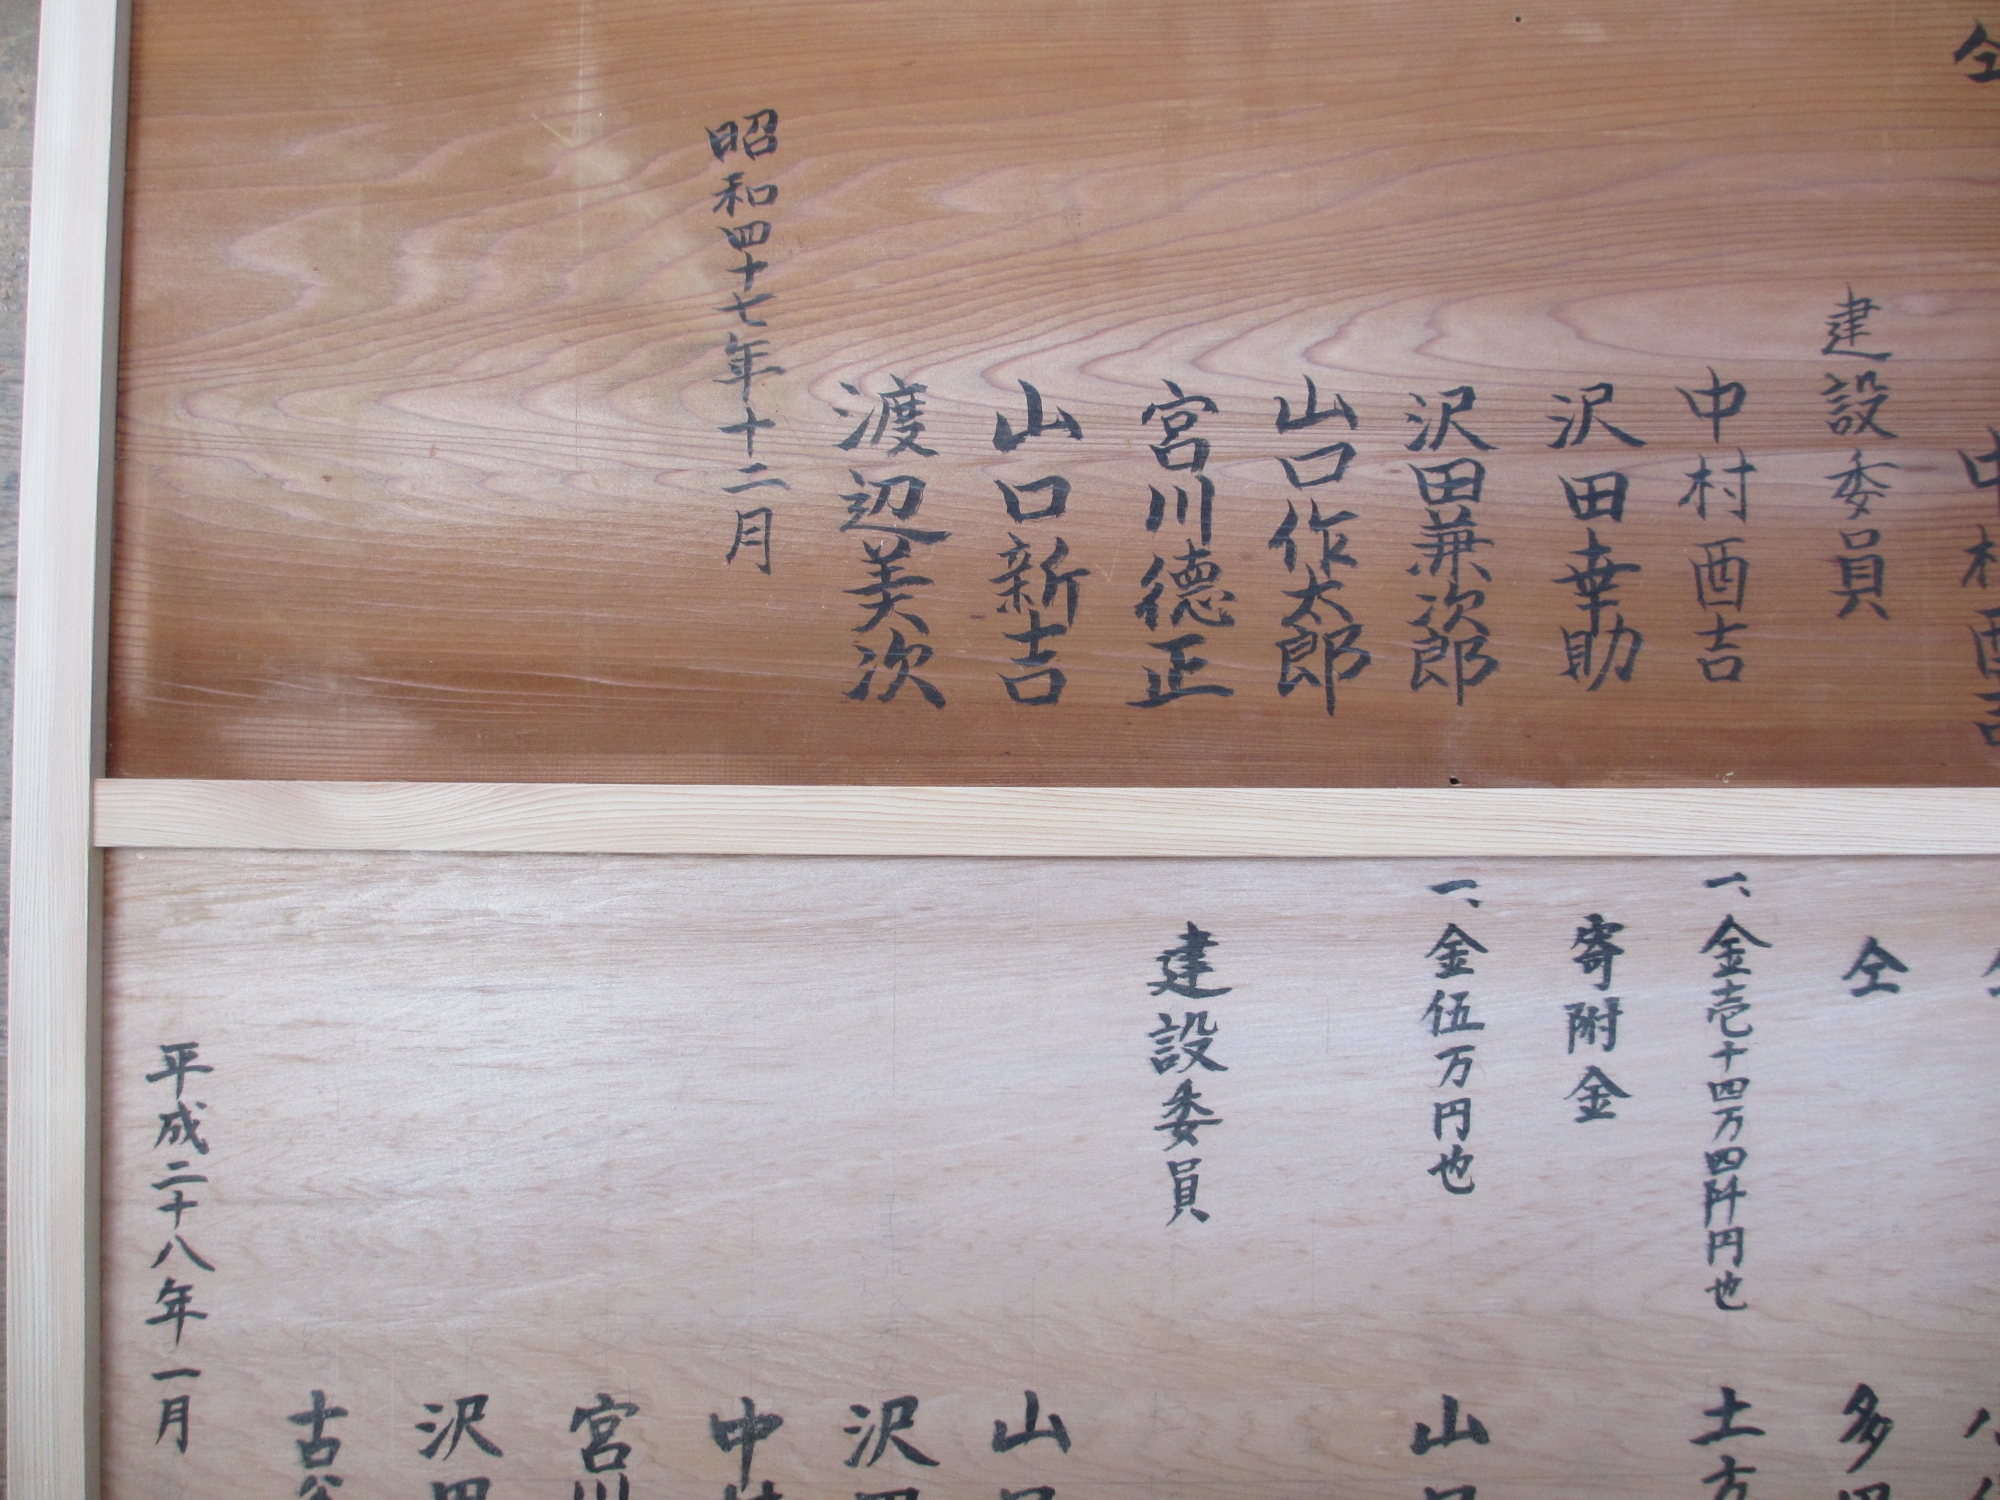 仝
中村酉吉
建設委員
中村酉吉
沢田幸助
沢田兼次郎
山口作太郎
宮川徳正
山口新吉
渡辺美次
昭和四十七年十二月
仝
多
一、金壱十四万四阡円也
土方
寄附金
一、金伍万円也
山
建設委員
山
沢
中
宮川
沢田
古
平成二十八年一月